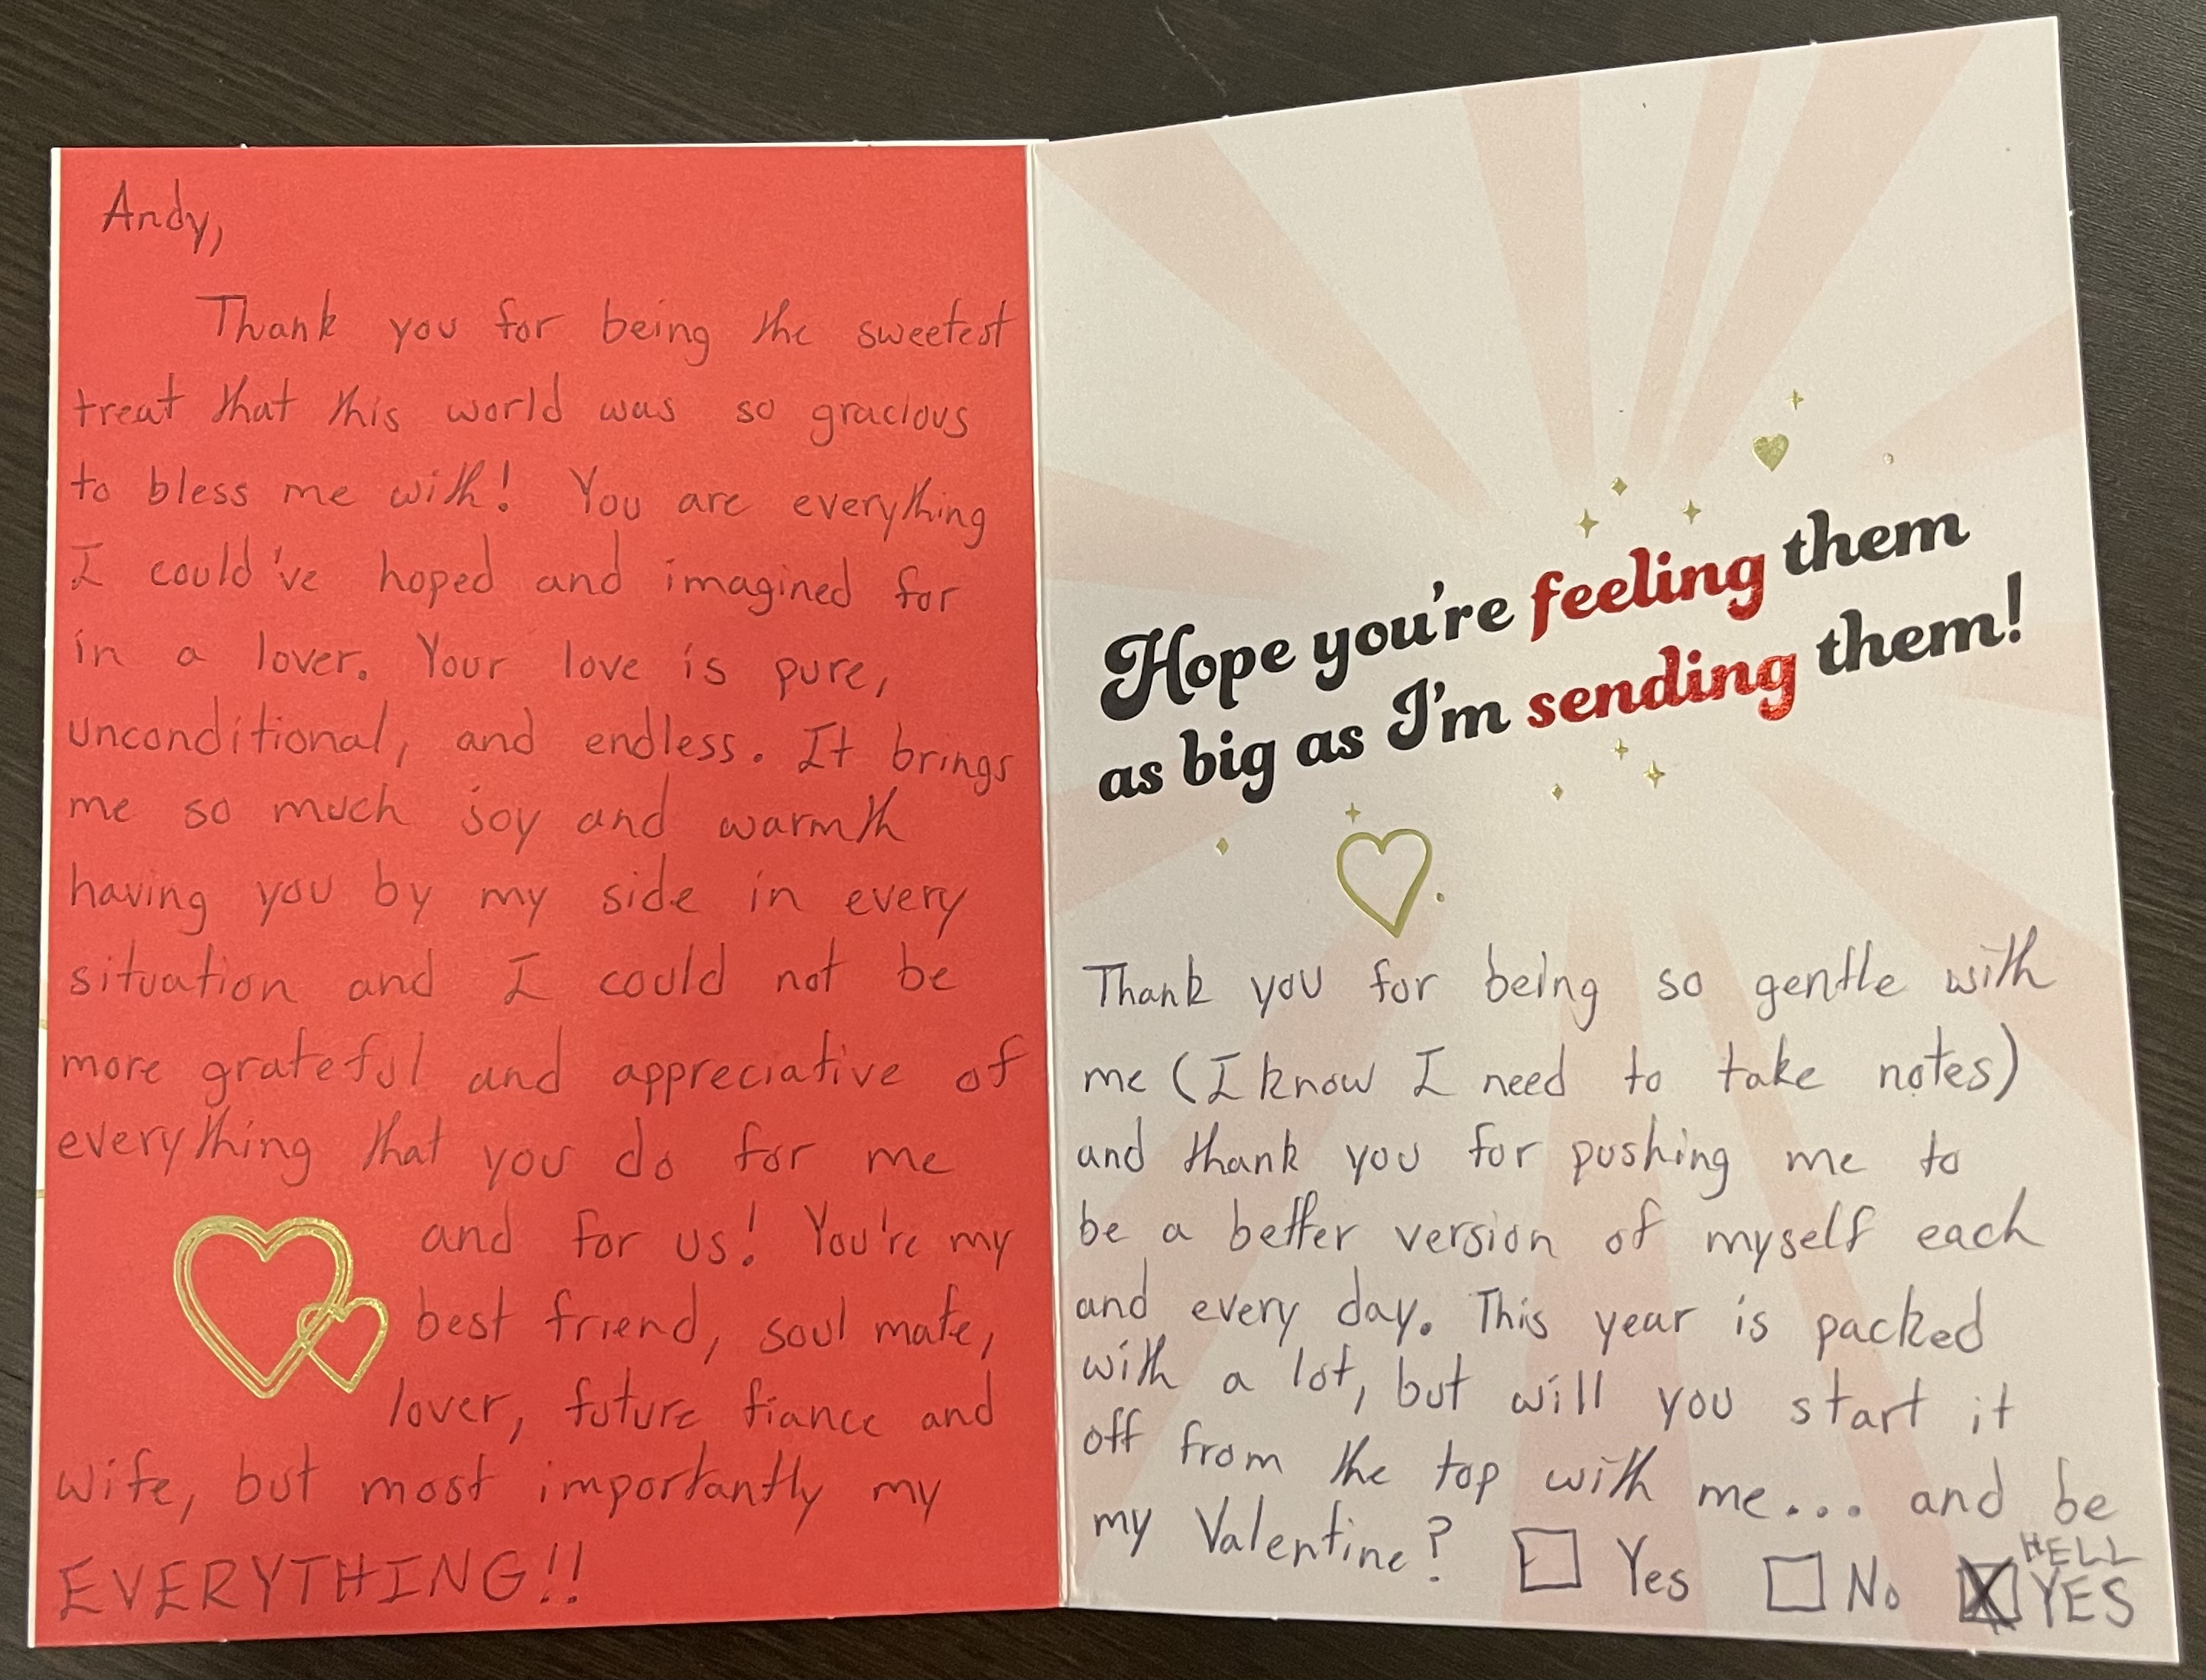 Andy,
Thank you for being the sweetest
treat that this world was so gracious
to bless me with! You are everything
I could've hoped and imagined for
in a lover. Your love is pure,
unconditional, and endless. It brings
me so much joy and warmth
having you by my side in every
situation and I could not be
more grateful and appreciative of
everything that you do for me
and for us! You're my
best friend, soul mate,
lover, future fiance and
wife, but most importantly my
EVERYTHING!!
Hope you're feeling them
as big as I'm sending them!
Thank you for being so gentle with
me (I know I need to take notes)
and thank you for pushing me to
be a better version of myself each
and every day. This year is packed
with a lot, but will you start it
off from the top with me... and be
my Valentine? ☐ Yes ☐ No ☒ HELL YES